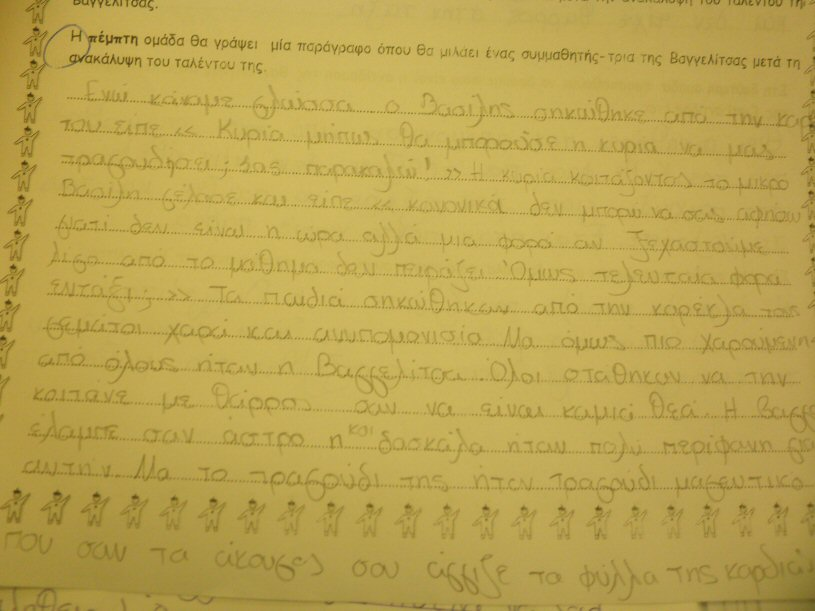 Βαγγελίτσας.
μετά την ανακάλυψη του ταλέντου τη
Η πέμπτη ομάδα θα γράψει μία παράγραφο όπου θα μιλάει ένας συμμαθητής-τρια της Βαγγελίτσας μετά τη
ανακάλυψη του ταλέντου της.
Ενώ κάναμε γλώσσα ο Βασίλης σηκώθηκε από την καρ
του είπε << Κυρία μήπως θα μπορούσε η κυρία να μας
τραγουδήσει; Σας παρακαλώ! >> Η κυρία κοιτάζοντας το μικρό
Βασίλη γέλασε και είπε << κανονικά δεν μπορώ να σας αφήσω
γιατί δεν είναι η ώρα αλλά μια φορά αν ξεχαστούμε
λίγο από το μάθημα δεν πειράζει. Όμως τελευταία φορά
εντάξει; >> Τα παιδιά σηκώθηκαν από την καρέκλα τους
γεμάτοι χαρά και ανυπομονισία Μα όμως πιο χαρούμενη
από όλους ήταν η Βαγγελίτσα. Όλοι στάθηκαν να την
κοιτάνε με θάρρος σαν να είναι καμιά θεά. Η Βαγγε
έλαμπε σαν άστρο και η δασκάλα ήταν πολύ περίφανη για
αυτην. Μα το τραγούδι της ήταν τραγουδι μαγευτικο
που σαν τα άκουγες σου άγγιζε τα φύλλα της καρδιάς